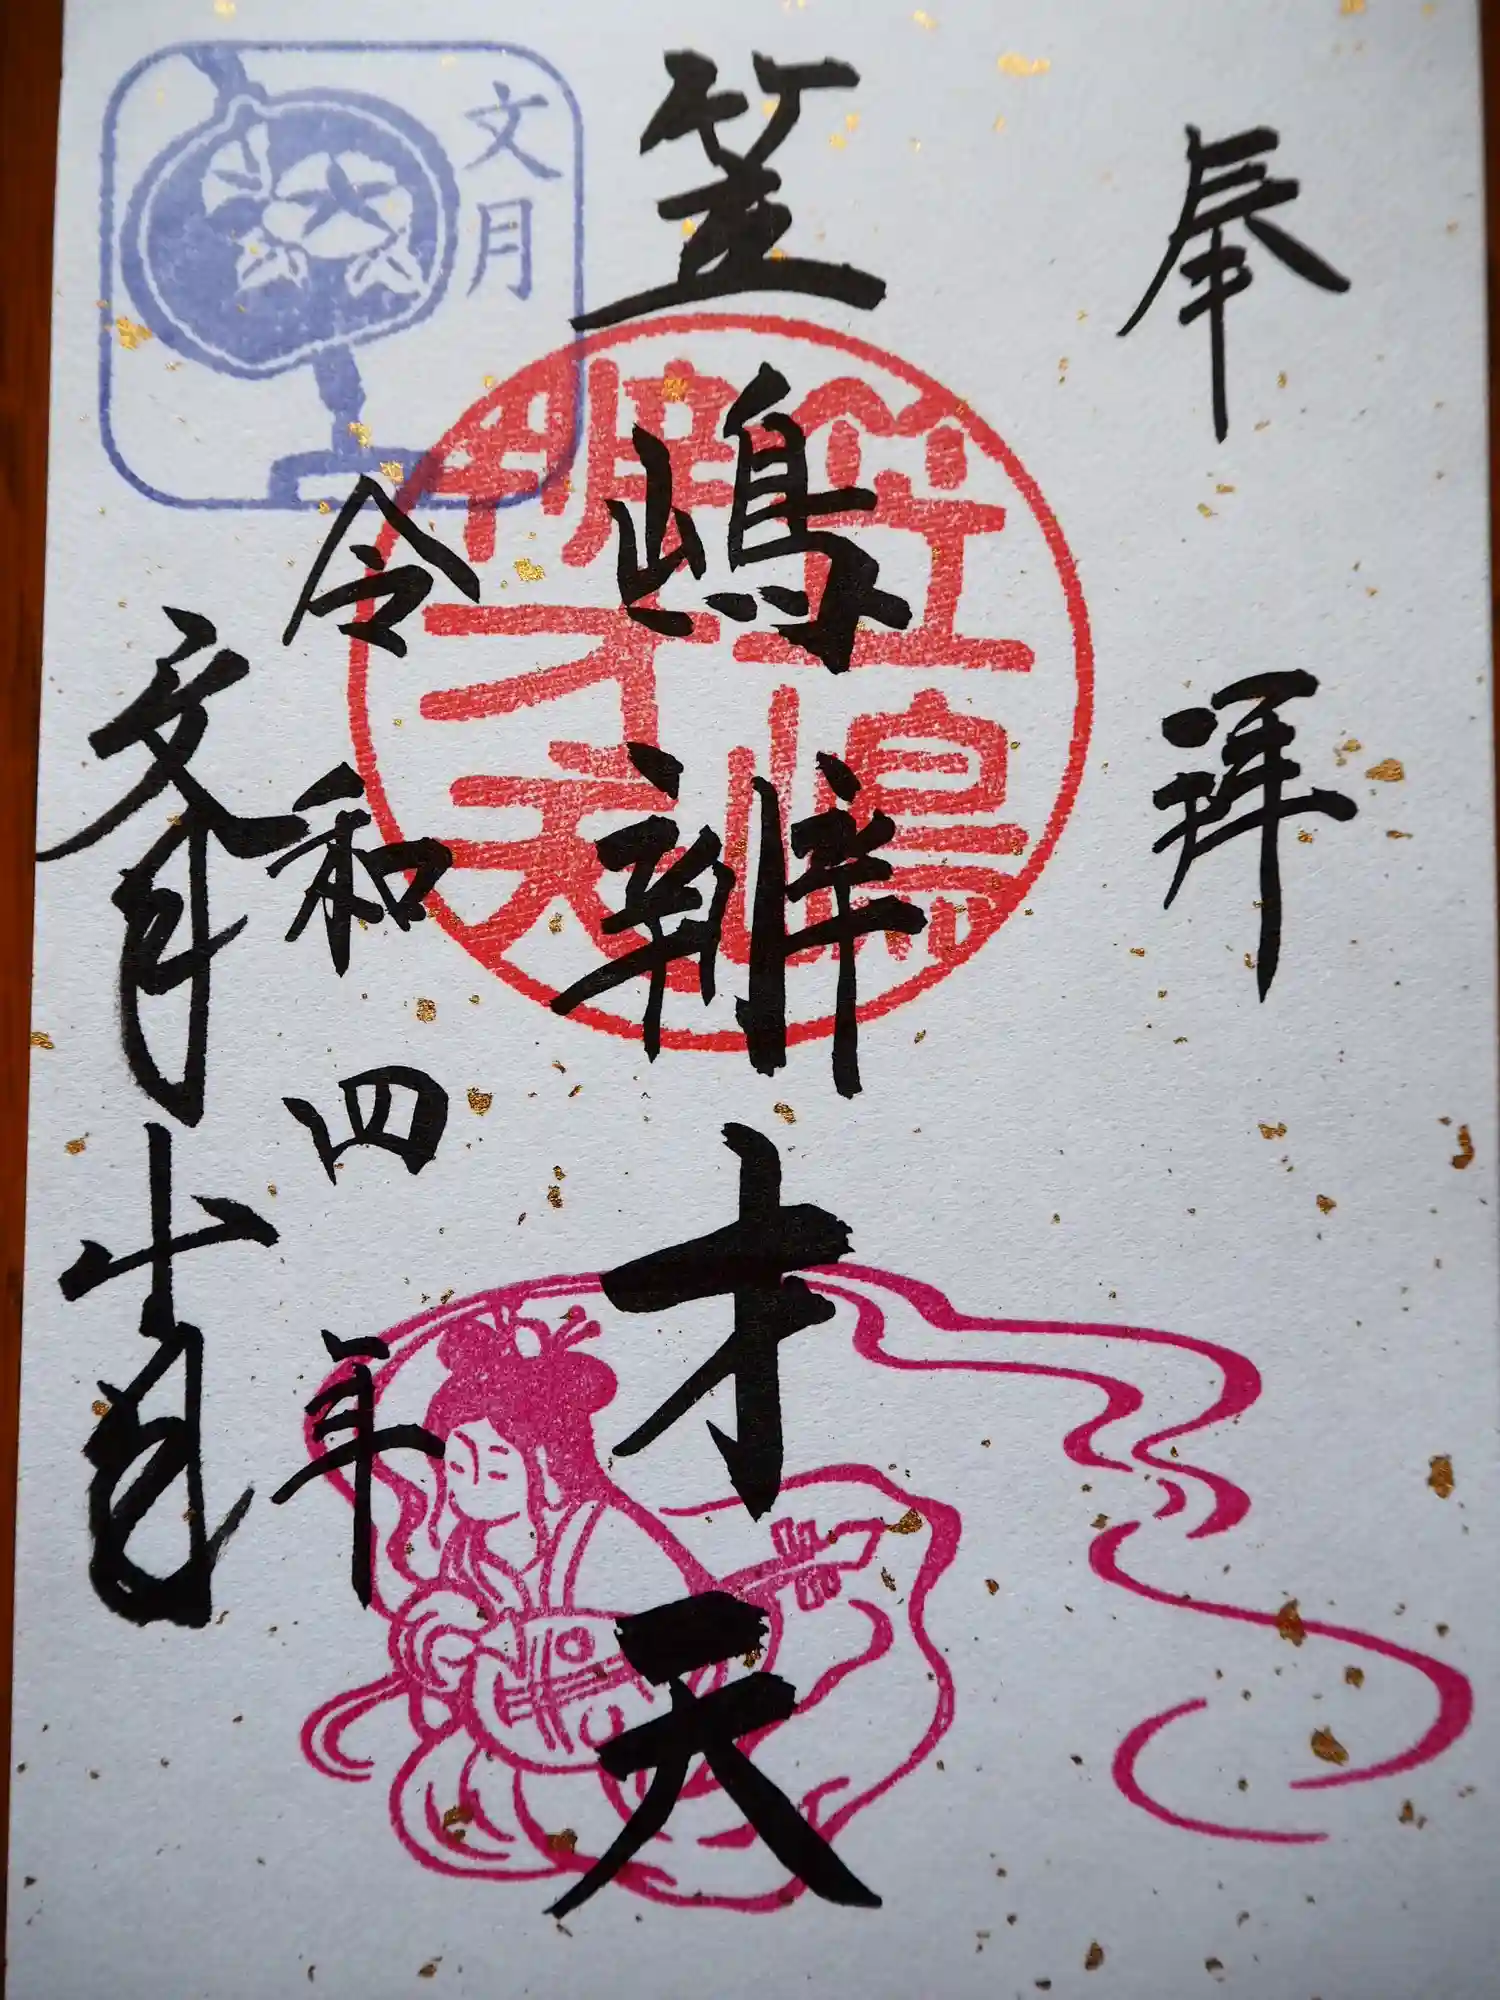 奉拝
笠嶋辨才天
笠嶋
辨才天
令和四年
文月日
文月